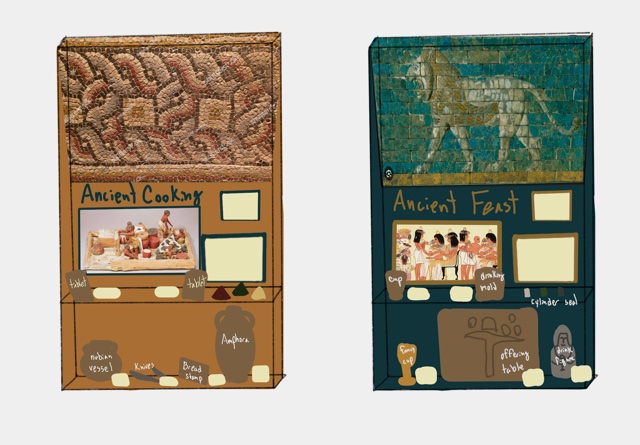 Ancient Cooking
tablet
tablet
nubian
vessel
Knives
Bread
stamp
Amphora
Ancient Feast
cup
drinking
cylinder seal
fancy
cup
offering
table
drink